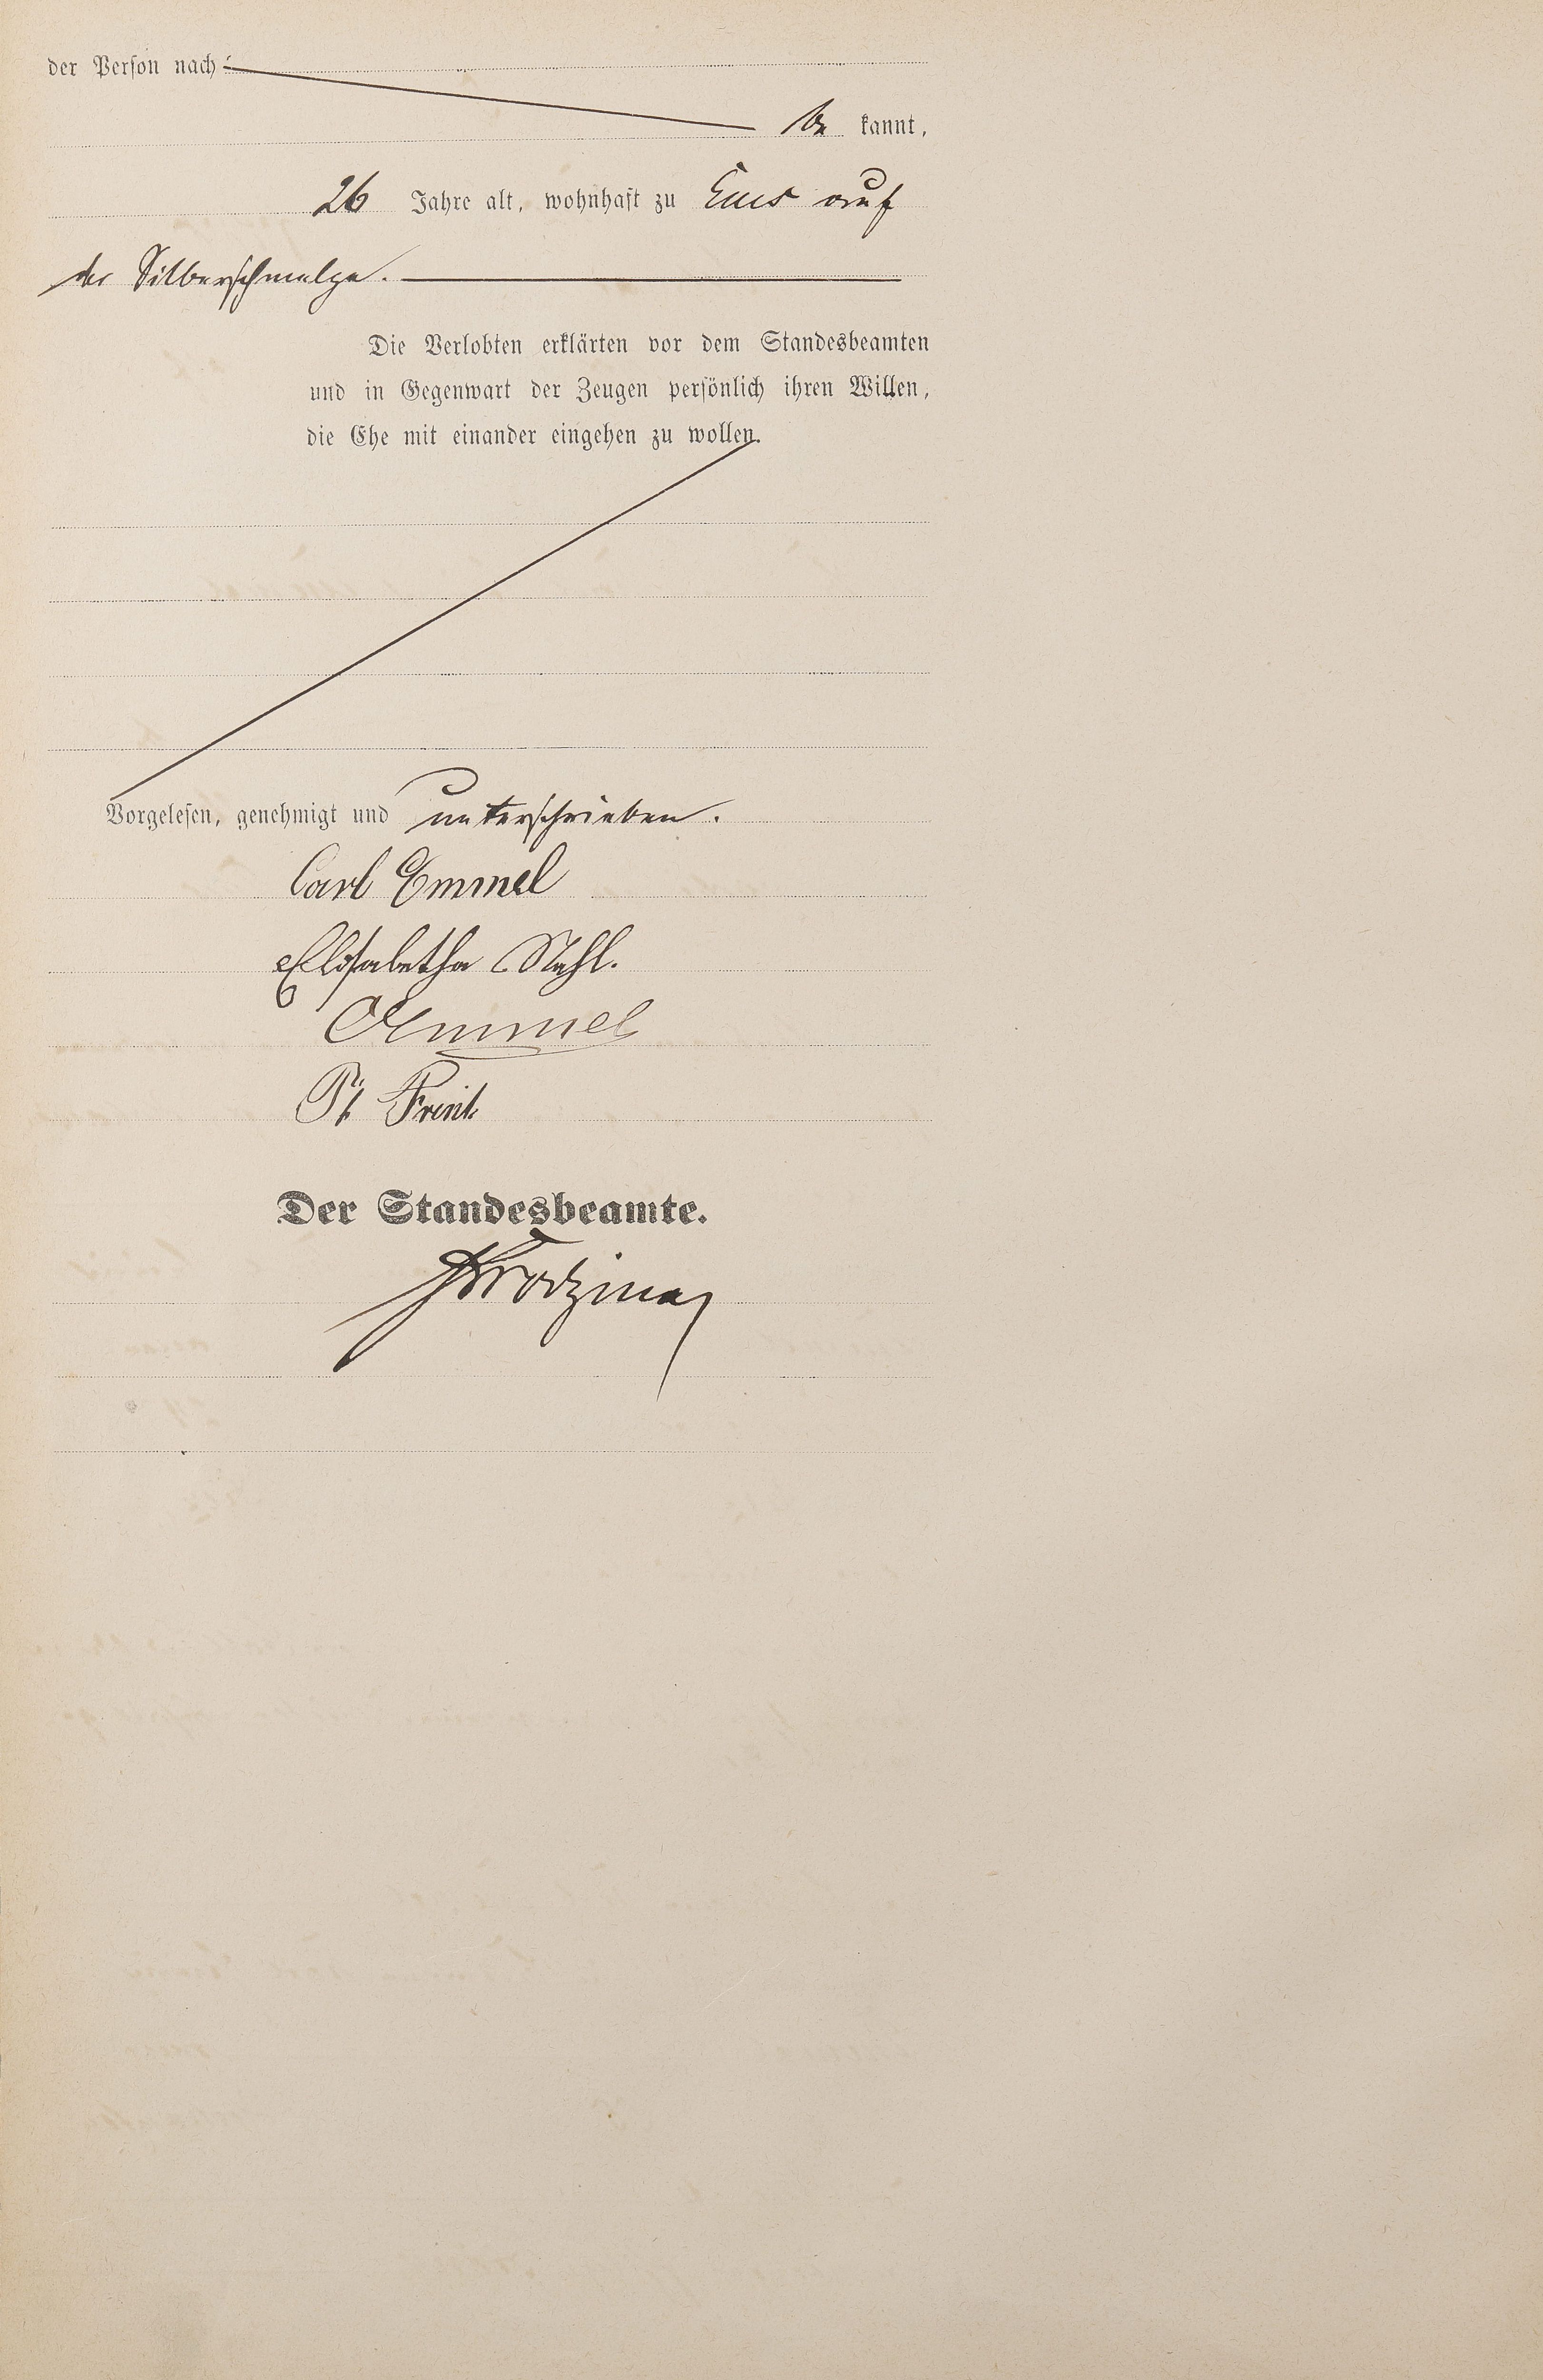 der Person nach
be kannt,
26 Jahre alt, wohnhaft zu Ems auf
der Silberschmelze.
Die Verlobten erklärten vor dem Standesbeamten
und in Gegenwart der Zeugen persönlich ihren Willen,
die Ehe mit einander eingehen zu wollen.
Vorgelesen, genehmigt und unterschrieben.
Carl Emmel
Elisabetha Stahl.
Emmel
Der Standesbeamte.